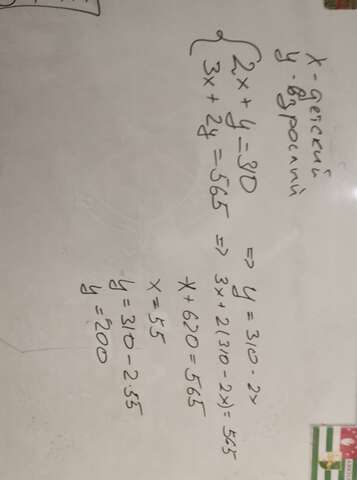 x - детский
y - взрослий
2x + y = 310 => y = 310 - 2x
3x + 2y = 565 => 3x + 2(310 - 2x) = 565
-x + 620 = 565
x = 55
y = 310 - 2·55
y = 200